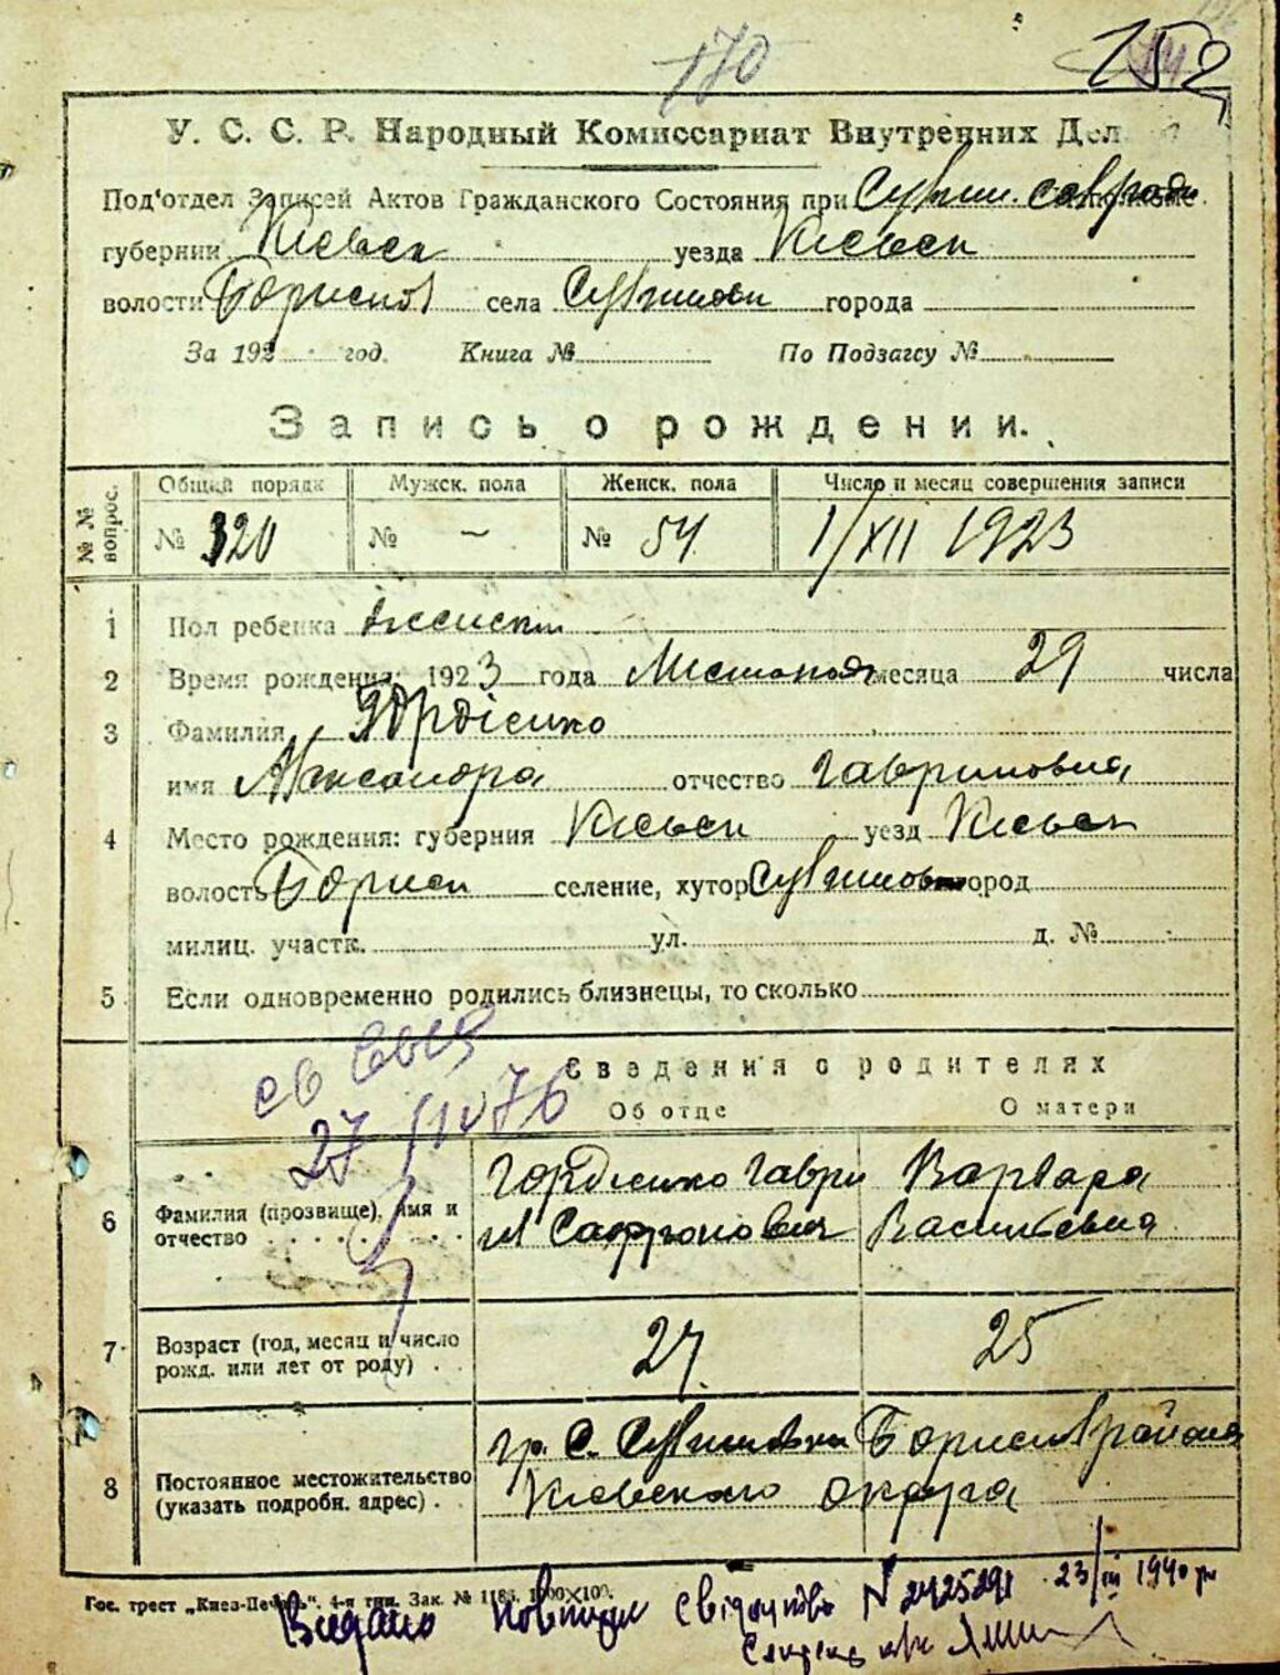 170
152
У. С. С. Р. Народный Комиссариат Внутренних Дел
Под'отдел Записей Актов Гражданского Состояния при
губернии Киевск уезда Киевск
волости села города
За 192 год. Книга № По Подзагсу №
Запись о рождении.
№ № вопрос. Общий порядк Мужск. пола Женск. пола Число и месяц совершения записи
№ 320 № — № 54 1/XII 1923
1 Пол ребенка женск
2 Время рождения: 1923 года Листопада месяца 29 числа
3 Фамилия Гордіенко
имя Александра отчество Гавриловна
4 Место рождения: губерния Киевск уезд Киевск
волость Борисп селение, хутор город
милиц. участк. ул. д. №
5 Если одновременно родились близнецы, то сколько
Сведения о родителях
27 76
Об отце О матери
6 Фамилия (прозвище), имя и отчество
Гордиенко Гаври Варвара
ил Сафронович Васильевна
7 Возраст (год, месяц и число рожд. или лет от роду) . . 27. 25
8 Постоянное местожительство (указать подробн. адрес) . .
гр. С. района
Киевского округа
Гос. трест „Киев-Печать". 4-я тип. Зак. №
Видано свідоцтво N 2425291 23/III 1940 р